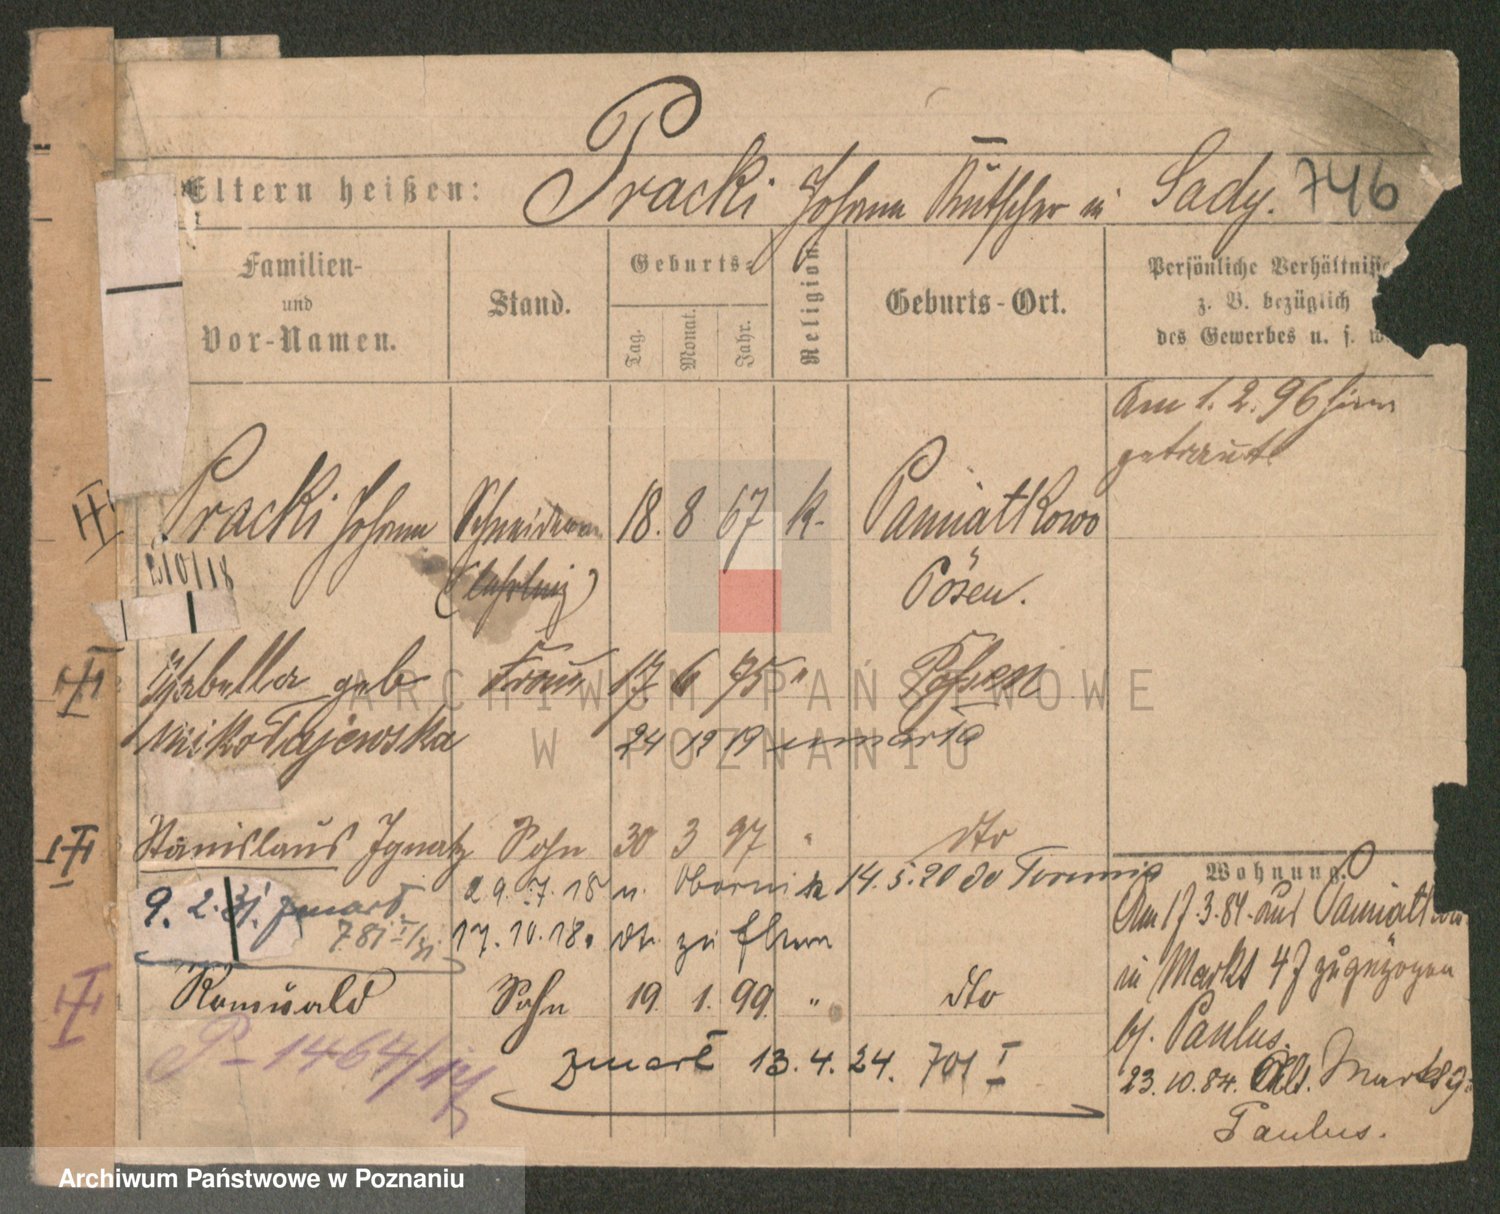 Eltern heißen: Pracki Johann Kutscher in Sady. 746
Familien-
und
Vor-Namen.
Stand.
Geburts-
Tag.
Monat.
Jahr.
Religion
Geburts-Ort.
Persönliche Verhältnisse
z. B. bezüglich
des Gewerbes u. s. w.
Am 1. 2. 96 hier
getraut.
Pracki Johann Schneider 18. 8 67 k. Pamiatkowo
(Lehrling) Posen.
Isabella geb Frau 17 6 75 " Posen
Mikołajewska 24 12 19 umarła
Stanislaus Ignatz Sohn 30 3 97 " dto
29. 7. 18 n. Obornik 14. 5. 20 do Torunia
9. 2. 31. zmarł
781 I/31
17. 10. 18. dt. zu Eltern
Romuald Sohn 19. 1. 99. " dto
P-1464/
zmarł 13. 4. 24. 701 I
Wohnung.
Am 17. 3. 84. aus Pamiatkowo
in Markt 47 zugezogen
bf. Paulus.
23. 10. 84. Alt. Markt 9.
Paulus.
ARCHIWUM PAŃSTWOWE
W POZNANIU
Archiwum Państwowe w Poznaniu